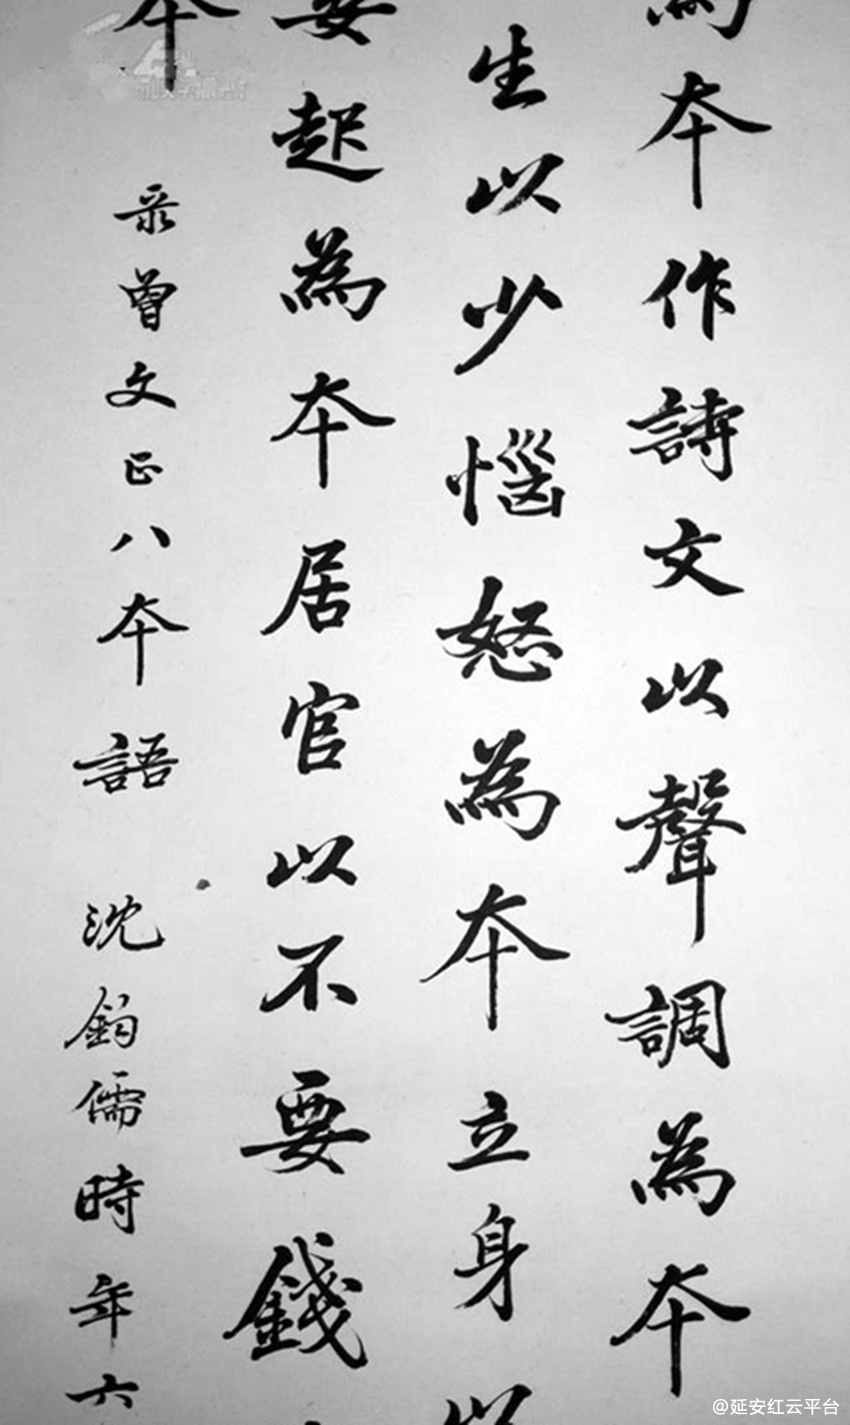 為本作詩文以聲調為本
生以少惱怒為本立身以
妄起為本居官以不要錢
本
彔曾文正八本語 沈鈞儒時年六
@延安红云平台